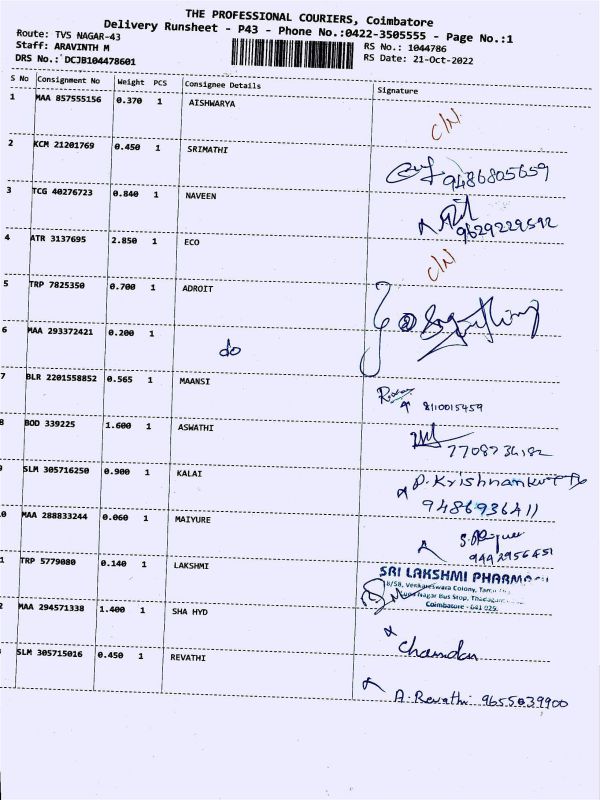 THE PROFESSIONAL COURIERS, Coimbatore
Delivery Runsheet - P43 - Phone No.:0422-3505555 - Page No.:1
Route: TVS NAGAR-43
Staff: ARAVINTH M RS No.: 1044786
DRS No.: DCJB104478601 RS Date: 21-Oct-2022
S No Consignment No Weight PCS Consignee Details Signature
1 MAA 857555156 0.370 1 AISHWARYA C/N
2 KCM 21201769 0.450 1 SRIMATHI 9486805659
3 TCG 40276723 0.840 1 NAVEEN 9629229592
4 ATR 3137695 2.850 1 ECO C/N
5 TRP 7825350 0.700 1 ADROIT
6 MAA 293372421 0.200 1 do
7 BLR 2201558852 0.565 1 MAANSI 8110015459
8 BOD 339225 1.600 1 ASWATHI 7708736182
9 SLM 305716250 0.900 1 KALAI P. Krishnankutty
9486936411
0 MAA 288833244 0.060 1 MAIYURE
9442956451
1 TRP 5779080 0.140 1 LAKSHMI SRI LAKSHMI PHARMA
8/58, Venkateswara Colony,
Nagar Bus Stop,
Coimbatore - 641 025.
2 MAA 294571338 1.400 1 SHA HYD Chandan
3 SLM 305715016 0.450 1 REVATHI A. Revathi 9655039900